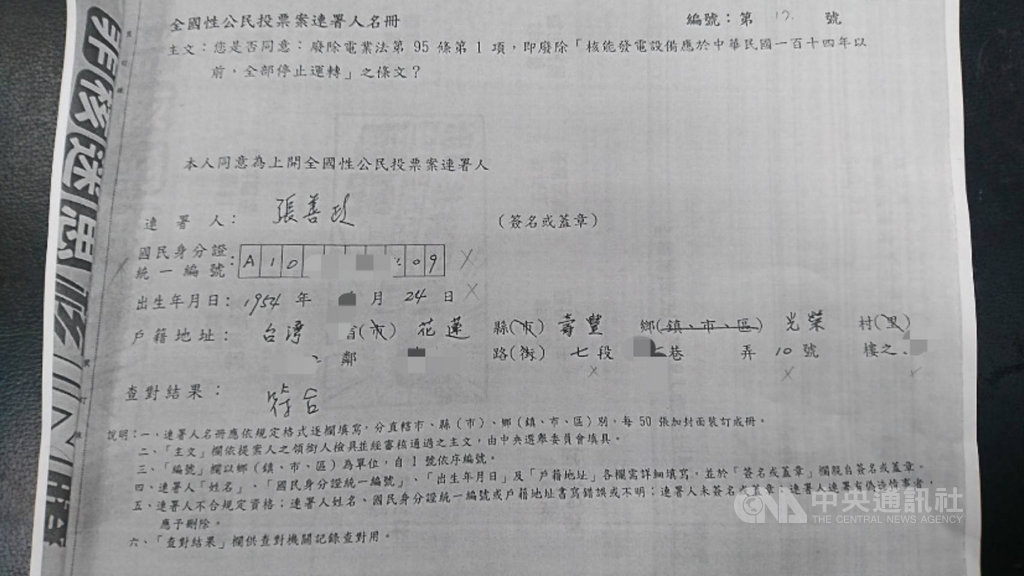 全國性公民投票案連署人名冊
編號：第 12. 號
主文：您是否同意：廢除電業法第 95 條第 1 項，即廢除「核能發電設備應於中華民國一百十四年以
前，全部停止運轉」之條文？
本人同意為上開全國性公民投票案連署人
連署人： 張善政 （簽名或蓋章）
國民身分證
統一編號： A10 09
出生年月日：1954 年 月 24 日
戶籍地址： 台灣 省(市) 花蓮 縣(市) 壽豐 鄉(鎮、市、區) 光榮 村(里)
鄰 路(街) 七段 巷 弄 10 號 樓之
查對結果： 符合
說明：一、連署人名冊應依規定格式逐欄填寫，分直轄市、縣（市）、鄉（鎮、市、區）別，每 50 張加封面裝訂成冊。
二、「主文」欄依提案人之領銜人檢具並經審核通過之主文，由中央選舉委員會填具。
三、「編號」欄以鄉（鎮、市、區）為單位，自 1 號依序編號。
四、連署人「姓名」、「國民身分證統一編號」、「出生年月日」及「戶籍地址」各欄需詳細填寫，並於「簽名或蓋章」欄親自簽名或蓋章。
五、連署人不合規定資格；連署人姓名、國民身分證統一編號或戶籍地址書寫錯誤或不明；連署人未簽名或蓋章；連署人連署有偽造情事者，
應予刪除。
六、「查對結果」欄供查對機關記錄查對用。
中央通訊社
CNA THE CENTRAL NEWS AGENCY